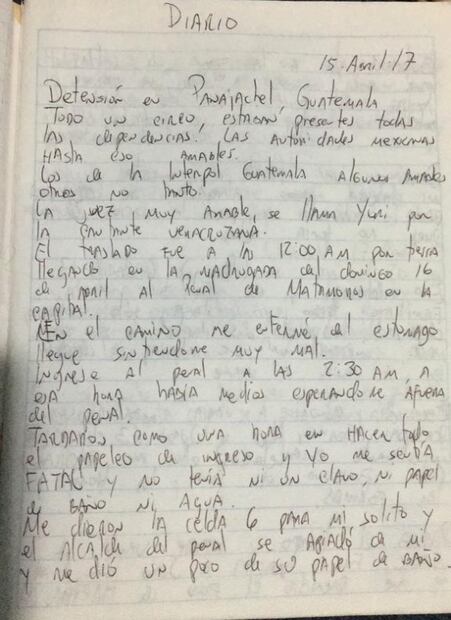 DIARIO
15. Abril. 17
Detensión en Panajachel, Guatemala
Todo un circo, estaban presentes todas
las dependencias. Las autoridades mexicanas
hasta eso amables.
Los de la Interpol Guatemala algunos amables
otros no tanto.
La juez muy amable, se llama Yuri por
la cantante veracruzana.
El traslado fue a las 12:00 AM por tierra
llegando en la madrugada del domingo 16
de april al penal de Matamoros en la
capital.
En el camino me enfermé del estomago
llegue sintiendome muy mal.
Ingrese al penal a las 2:30 AM, a
esa hora había medios esperandome afuera
del penal.
Tardaron como una hora en hacer todo
el papeleo de ingreso y yo me sentía
FATAL y no tenía ni un clavo, ni papel
de baño ni agua.
Me dieron la celda 6 para mi solito y
el alcalde del penal se apiadó de mi
y me dió un poco de su papel de baño.